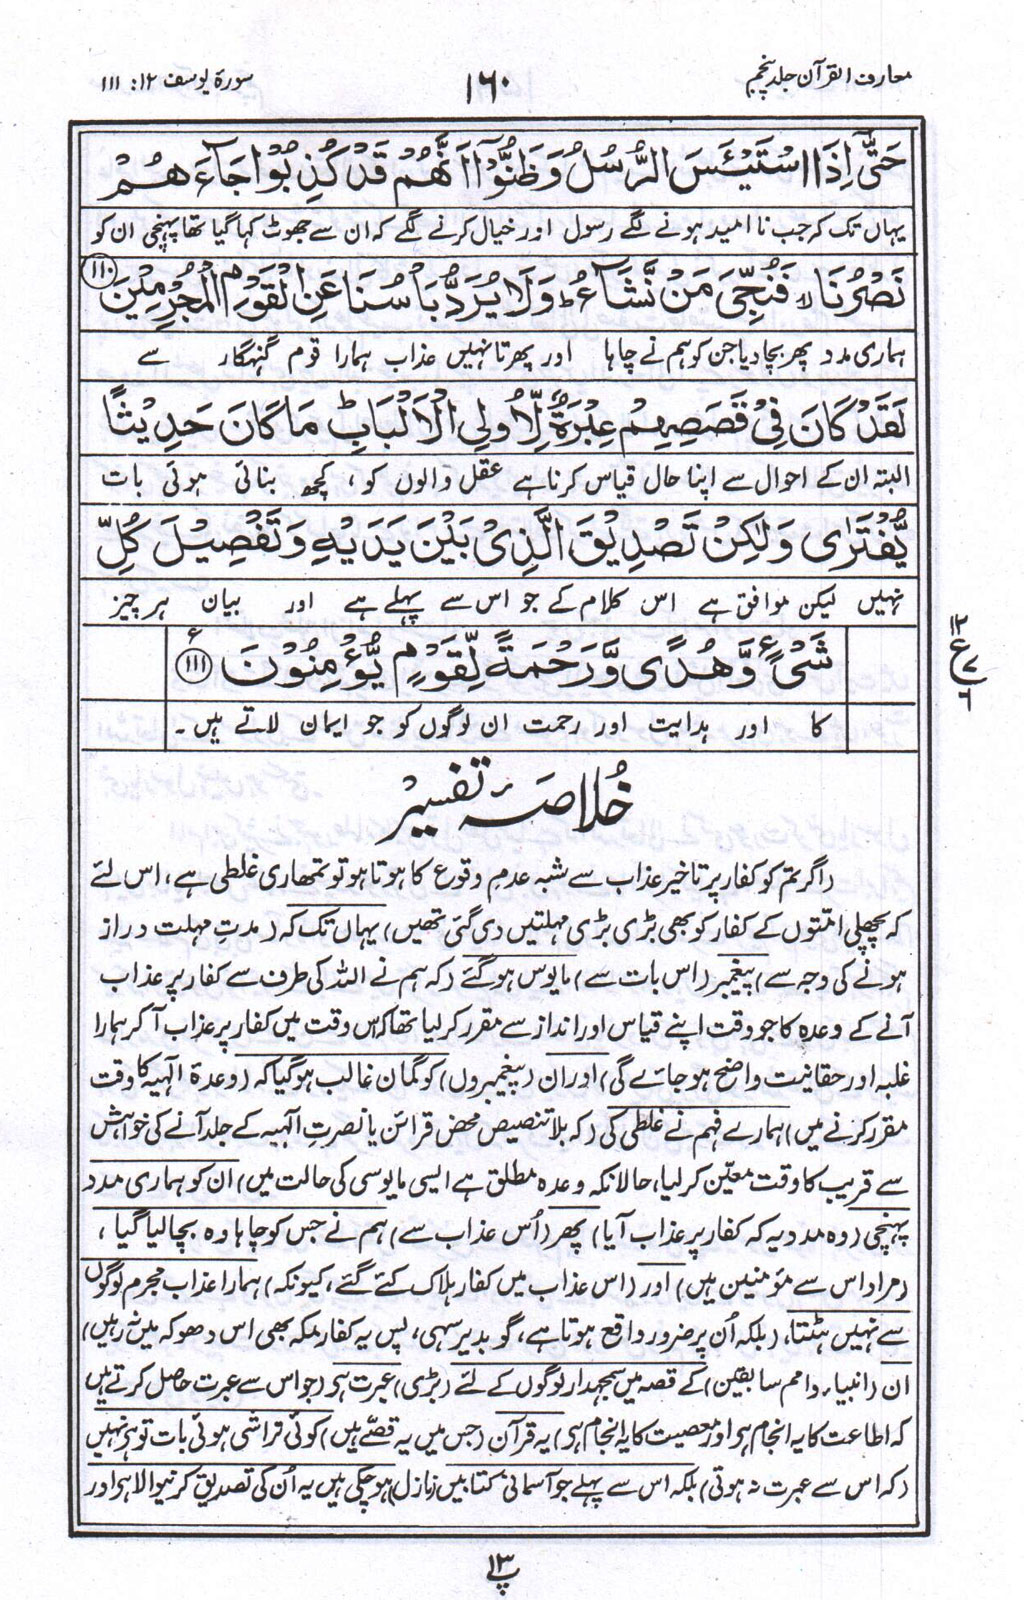 معارف القرآن جلد پنجم
۱۶۰
سورۃ یوسف ۱۲: ۱۱۱
حَتّٰۤى اِذَا اسْتَيْـَٔسَ الرُّسُلُ وَظَنُّوْۤا اَنَّهُمْ قَدْ كُذِبُوْا جَآءَهُمْ
یہاں تک کہ جب نا امید ہونے لگے رسول اور خیال کرنے لگے کہ ان سے جھوٹ کہا گیا تھا پہنچی ان کو
نَصْرُنَا ۙ فَنُجِّىَ مَنْ نَّشَآءُ ؕ وَلَا يُرَدُّ بَاْسُنَا عَنِ الْقَوْمِ الْمُجْرِمِيْنَ ۱۱۰
ہماری مدد پھر بچا دیا جن کو ہم نے چاہا اور پھرتا نہیں عذاب ہمارا قوم گنہگار سے
لَقَدْ كَانَ فِيْ قَصَصِهِمْ عِبْرَةٌ لِّاُولِي الْاَلْبَابِ ؕ مَا كَانَ حَدِيْثًا
البتہ ان کے احوال سے اپنا حال قیاس کرنا ہے عقل والوں کو، کچھ بنائی ہوئی بات
يُّفْتَرٰى وَلٰكِنْ تَصْدِيْقَ الَّذِيْ بَيْنَ يَدَيْهِ وَتَفْصِيْلَ كُلِّ
نہیں لیکن موافق ہے اس کلام کے جو اس سے پہلے ہے اور بیان ہر چیز
شَيْءٍ وَّهُدًى وَّرَحْمَةً لِّقَوْمٍ يُّؤْمِنُوْنَ ۱۱۱ ع
۱۲
ع ۷
۶
کا اور ہدایت اور رحمت ان لوگوں کو جو ایمان لاتے ہیں۔
خُلاصۂ تفسیر
(اگر تم کو کفار پر تاخیر عذاب سے شبہ عدمِ وقوع کا ہوتا ہو تو تمھاری غلطی ہے، اس لئے
کہ پچھلی امتوں کے کفار کو بھی بڑی بڑی مہلتیں دی گئی تھیں) یہاں تک کہ (مدتِ مہلت دراز
ہونے کی وجہ سے) پیغمبر (اس بات سے) مایوس ہو گئے (کہ ہم نے اللہ کی طرف سے کفار پر عذاب
آنے کے وعدہ کا جو وقت اپنے قیاس اور انداز سے مقرر کر لیا تھا کہ اس وقت میں کفار پر عذاب آ کر ہمارا
غلبہ اور حقانیت واضح ہو جائے گی) اور ان (پیغمبروں) کو گمان غالب ہو گیا کہ (وعدۂ الٰہیہ کا وقت
مقرر کرنے میں) ہمارے فہم نے غلطی کی (کہ بلا تنصیص محض قرائن یا نصرتِ الٰہیہ کے جلد آنے کی خواہش
سے قریب کا وقت معیّن کر لیا، حالانکہ وعدہ مطلق ہے ایسی مایوسی کی حالت میں) ان کو ہماری مدد
پہنچی (وہ مدد یہ کہ کفار پر عذاب آیا) پھر (اُس عذاب سے) ہم نے جس کو چاہا وہ بچا لیا گیا،
(مراد اس سے مؤمنین ہیں) اور (اس عذاب میں کفار ہلاک کئے گئے، کیونکہ) ہمارا عذاب مجرم لوگوں
سے نہیں ہٹتا، (بلکہ اُن پر ضرور واقع ہوتا ہے، گو بدیر سہی، پس یہ کفار مکہ بھی اس دھوکہ میں نہ رہیں)
ان (انبیاء و امم سابقین) کے قصہ میں سمجھدار لوگوں کے لئے (بڑی) عبرت ہی (جو اس سے عبرت حاصل کرتے ہیں
کہ اطاعت کا یہ انجام ہی اور معصیت کا یہ انجام ہی) یہ قرآن (جس میں یہ قصّے ہیں) کوئی تراشی ہوئی بات تو ہی نہیں
(کہ اس سے عبرت نہ ہوتی) بلکہ اس سے پہلے جو آسمانی کتابیں (نازل) ہو چکی ہیں یہ اُن کی تصدیق کرنیوالا ہی اور
پ۱۳